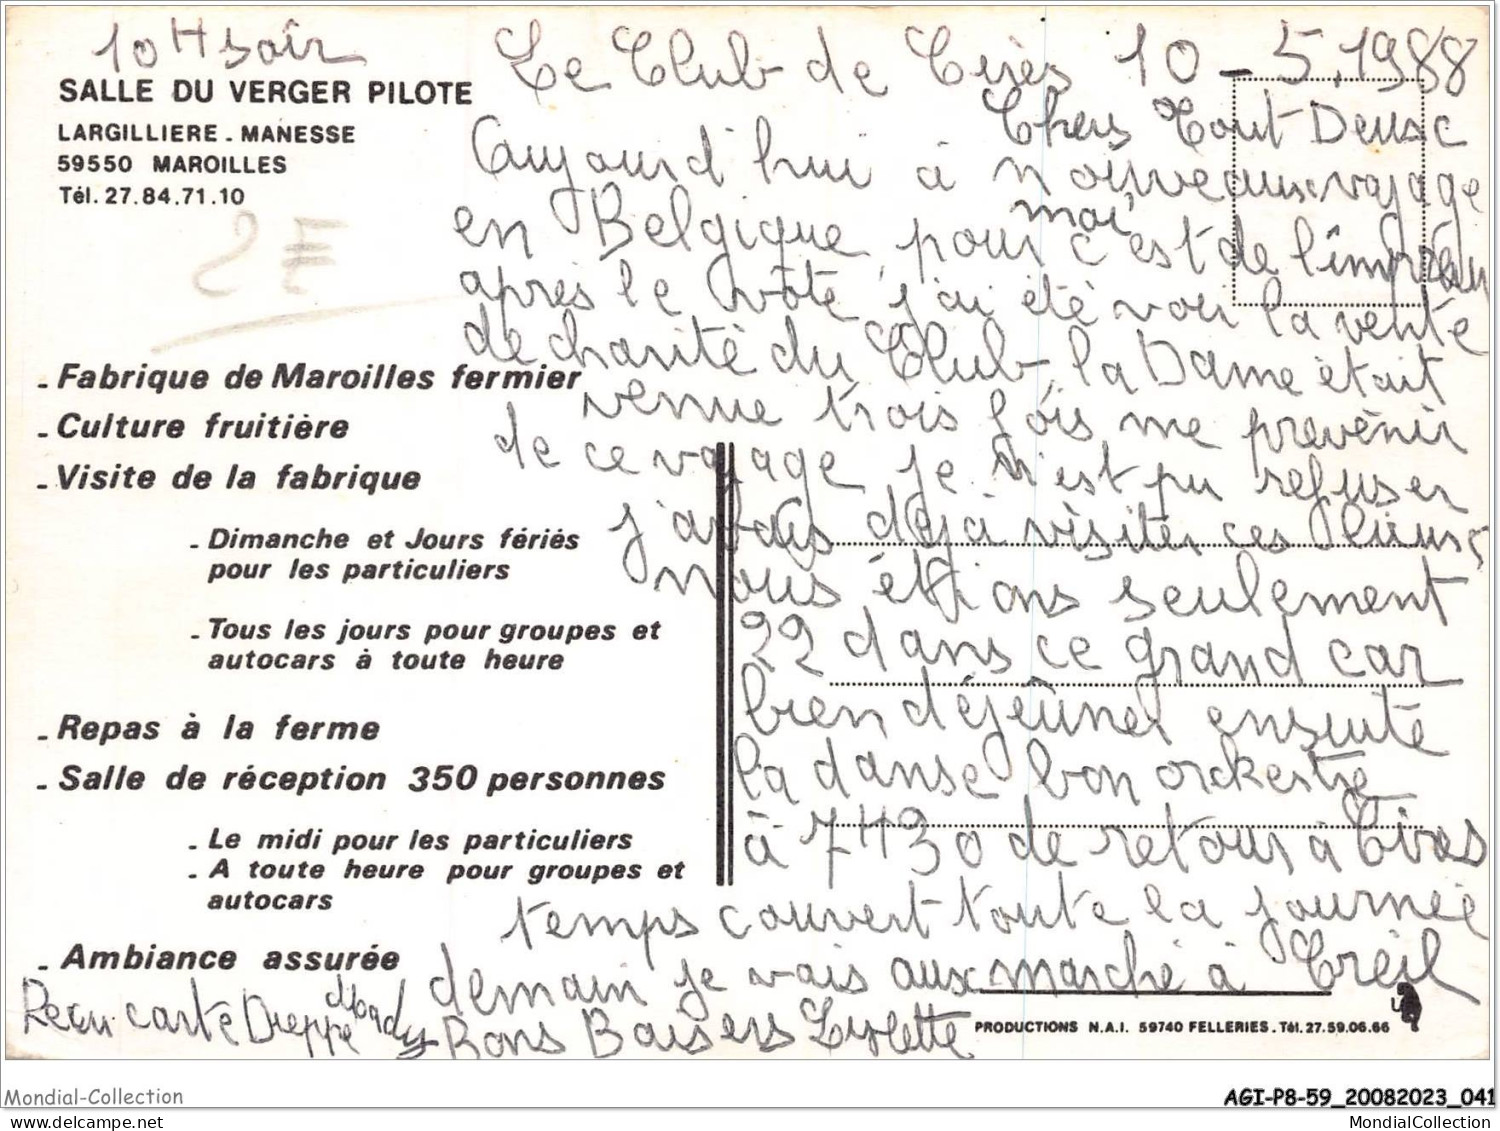 10 H soir
SALLE DU VERGER PILOTE
LARGILLIERE - MANESSE
59550 MAROILLES
Tél. 27.84.71.10
2E
- Fabrique de Maroilles fermier
- Culture fruitière
- Visite de la fabrique
- Dimanche et Jours fériés
pour les particuliers
- Tous les jours pour groupes et
autocars à toute heure
- Repas à la ferme
- Salle de réception 350 personnes
- Le midi pour les particuliers
- A toute heure pour groupes et
autocars
- Ambiance assurée
Le Club de Cirès 10 - 5.1988
Chers Tout Deux
Aujourd'hui à nouveaux voyage
en Belgique, pour moi c'est de l'imprévu
après le vôte j'ai été voir la vente
de charité du Club, la Dame était
venue trois fois me prevenir
de ce voyage je n'est pu refuser
j'avais déjà visiter ces lieux,
nous étions seulement
22 dans ce grand car
bien déjeûner ensuite
la danse bon orckestre
à 7H30 de retour à Cires
temps couvert toute la journée
demain je vais aux marché à Creil
Bons Baisers
Reçu carte Dieppe
PRODUCTIONS N.A.I. 59740 FELLERIES. Tél. 27.59.06.66
Mondial-Collection
AGI-P8-59_20082023_041
MondialCollection